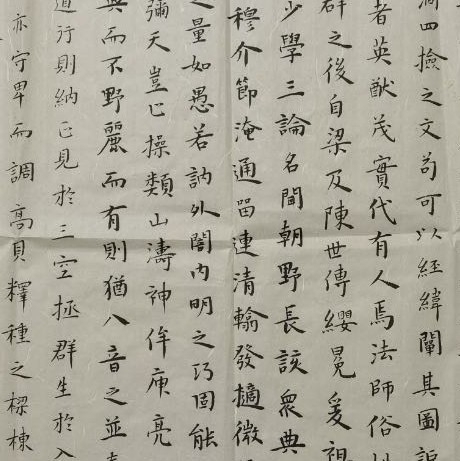 四撿之文苟可以經緯闡其圖
者英猷茂實代有人焉法師俗
群之後自梁及陳世傳纓冕爰祖
少學三論名聞朝野長該衆典
穆介節淹通留連清翰發擿微
量如愚若訥外闇内明之巧固能
彌天豈止操類山濤神侔庾亮
典而不野麗而有則猶八音之並
道行則納正見於三空拯群生於
亦守卑而調高貝釋種之樑棟